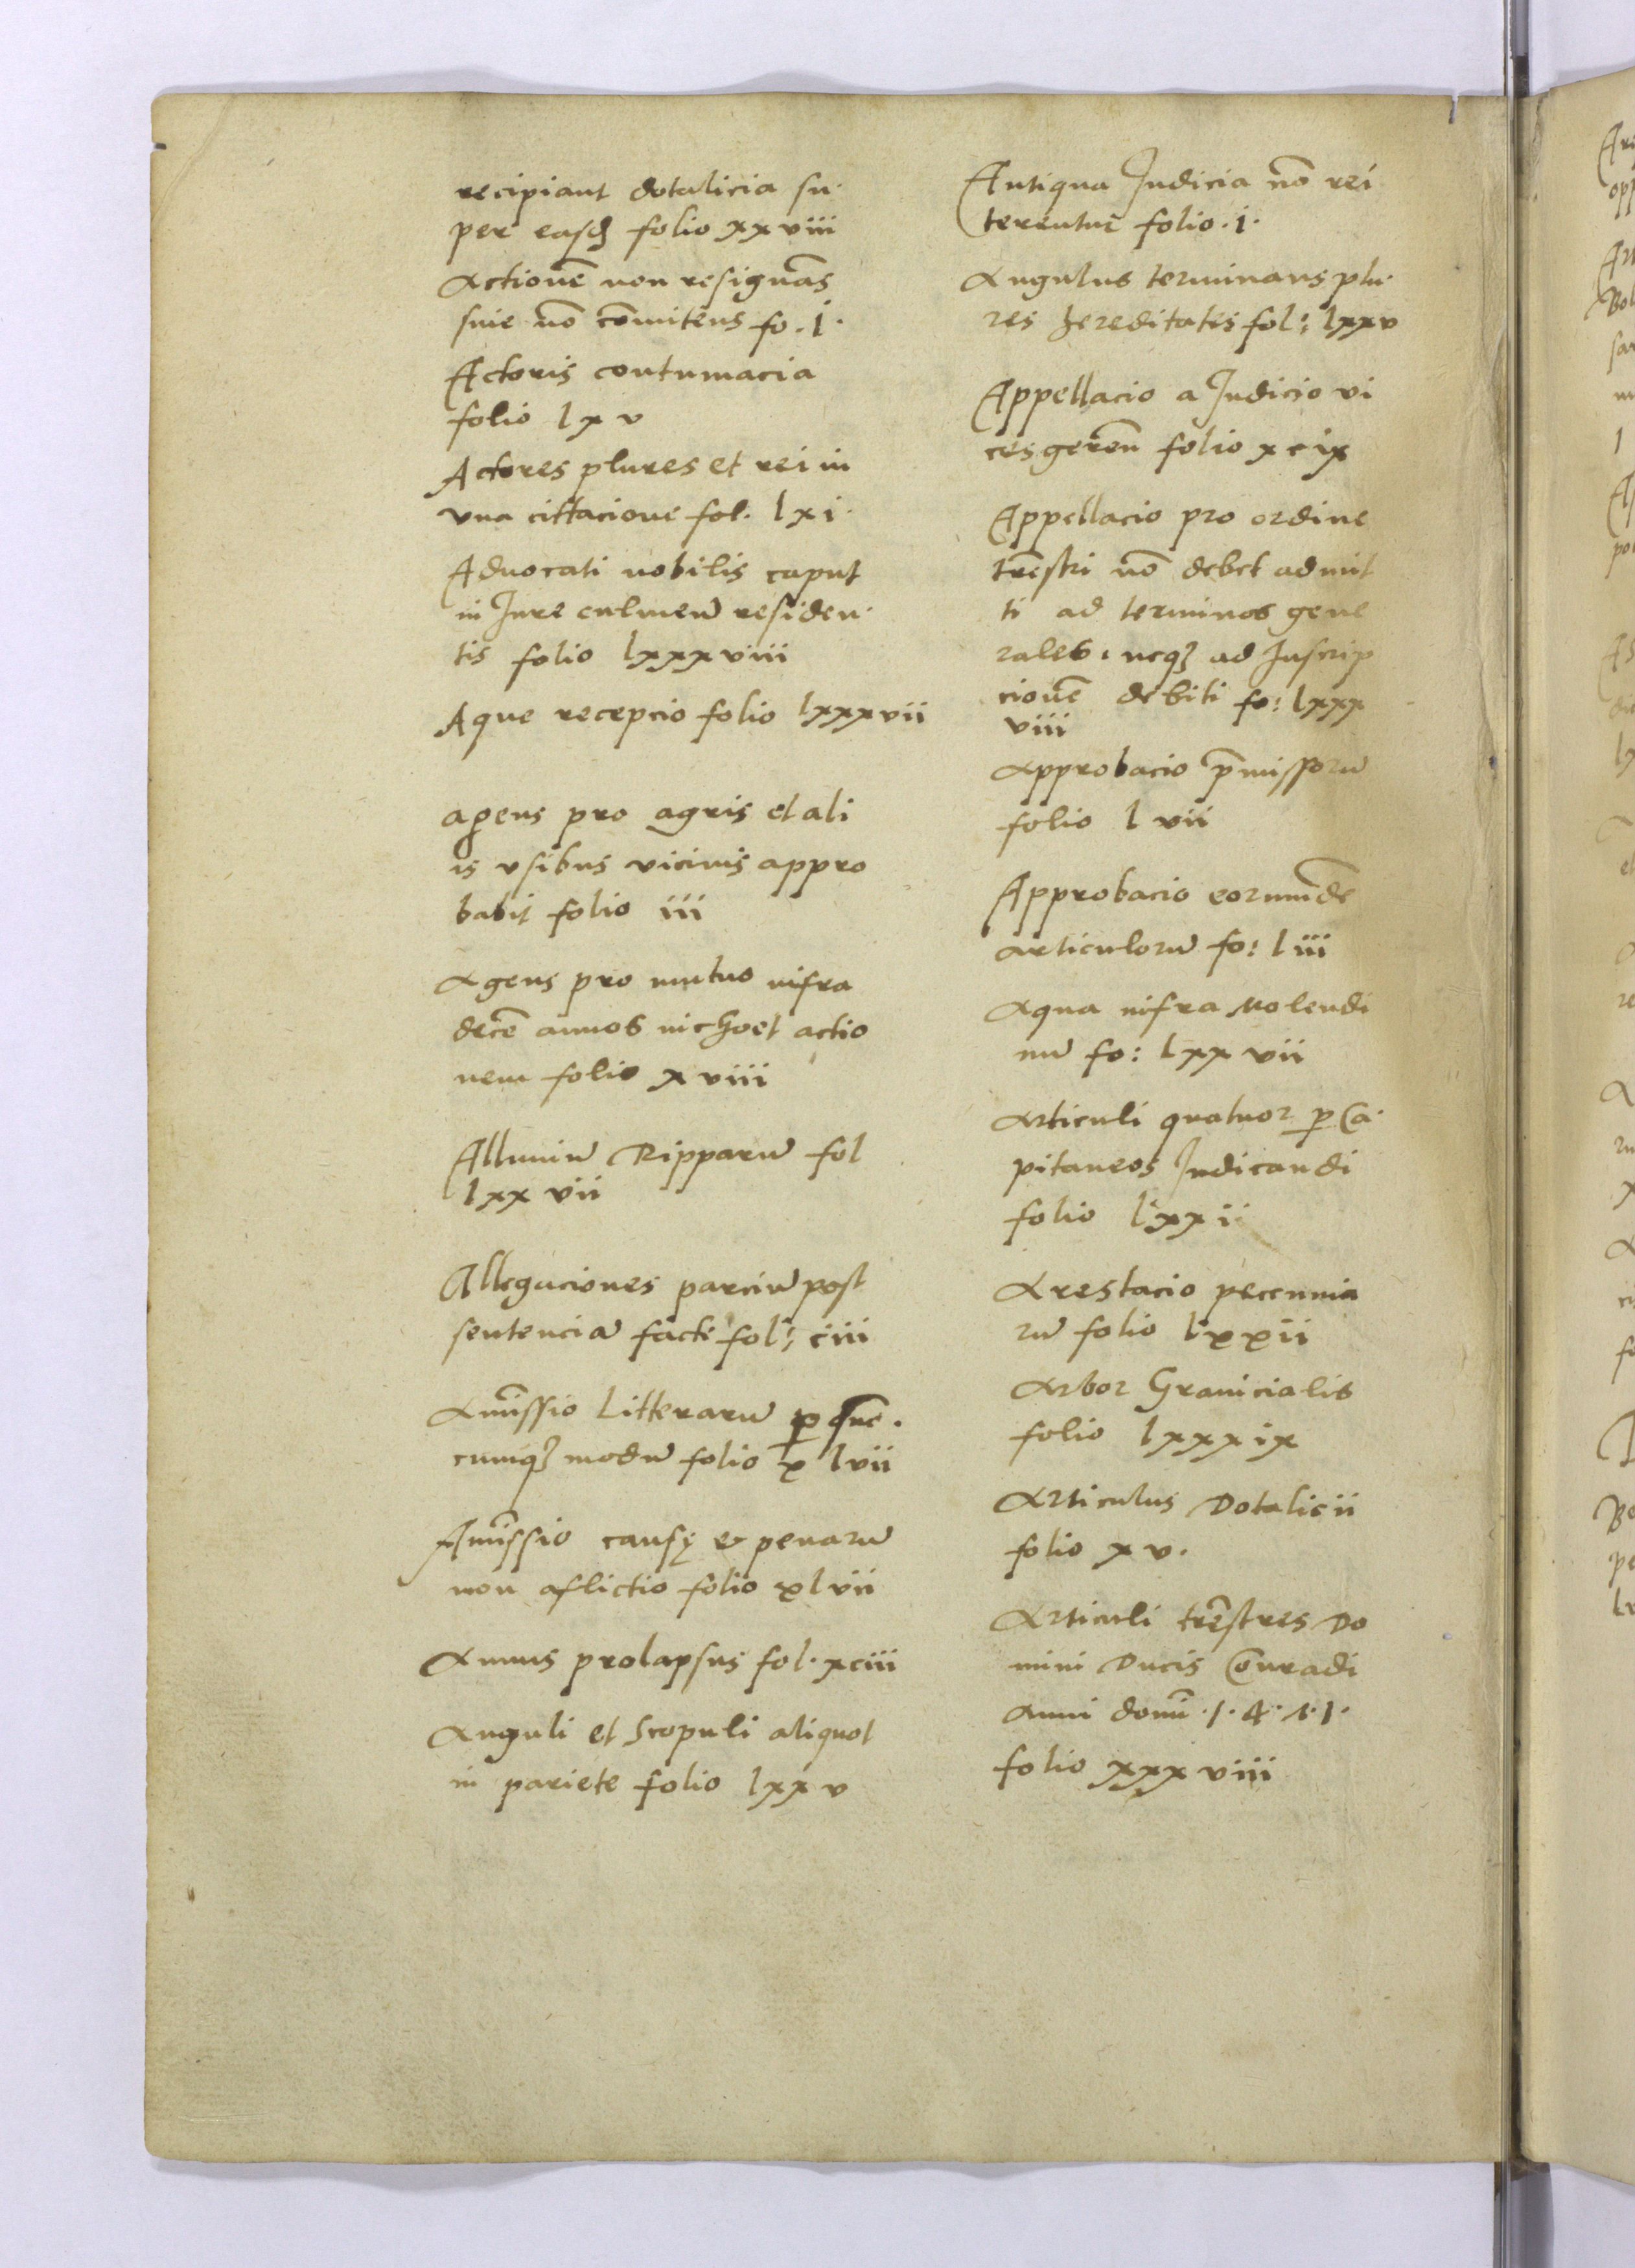 recipiant dotalicia su·
per easdem folio xxviii
Actionē non resignās
siue nō cōmitens fo. l·
Actoris contumacia
folio lxv
Actores plures et rei in
vna cittacione fol. lxi·
Aduocati nobilis caput
in Jure culmenū residen·
tis folio lxxxviii
Aque recepcio folio lxxxvii
agens pro agris et ali
is vsibus vicinis appro
babit folio iii
Agens pro mutuo infra
decē annos inchoet actio
nem folio xviii
Alluuiū Ripparū fol
lxxvii
Allegaciones parciū post
sentenciā facte fol: ciii
Amīssio Litterarū
cumqꝫ modū folio xlvii
Amīssio causę & penarū
non aflictio folio xlvii
Annus prolapsus fol· xciii
Anguli et Scopuli aliquot
in pariete folio lxxv
Antiqua Judicia nō rei
terentur folio·i·
Angulus terminans plu·
res hereditates fol: lxxv
Appellacio a Judicio vi
cesgerēn folio xcix
Appellacio pro ordine
trēstri nō debet admit
ti ad terminos gene
rales, neqꝫ ad Inscrip
cionē debiti fo: lxxx
viii
Approbacio p̄missorū
folio lvii
Approbacio eorumde
articulorū fo: liii
Aqua infra Molendi
nū fo: lxxvii
Articuli quatuor ꝑ Ca·
pitaneos Judicandi
folio lxxii
Arestacio pecunia
rū folio lxxii
Arbor Granicialis
folio lxxxix
Articulus Dotalicii
folio xv·
Articuli trēstres Do
mini Ducis Conradi
Anni domī ·1·4·1·1·
folio xxxviii